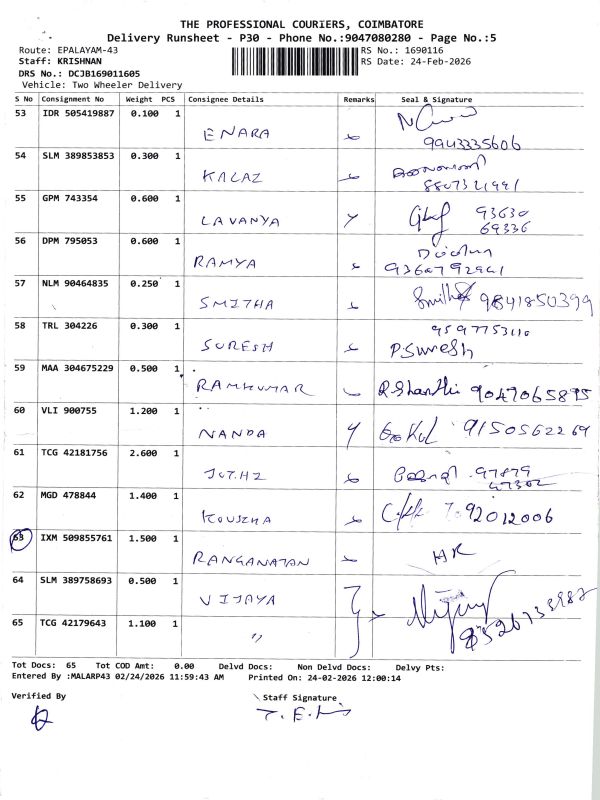 THE PROFESSIONAL COURIERS, COIMBATORE
Delivery Runsheet - P30 - Phone No.:9047080280 - Page No.:5
Route: EPALAYAM-43
RS No.: 1690116
Staff: KRISHNAN
RS Date: 24-Feb-2026
DRS No.: DCJB169011605
Vehicle: Two Wheeler Delivery
S No Consignment No Weight PCS Consignee Details Remarks Seal & Signature
53 IDR 505419887 0.100 1
ENARA
9943335606
54 SLM 389853853 0.300 1
KALAZ
8807321991
55 GPM 743354 0.600 1
LAVANYA 93630
69336
56 DPM 795053 0.600 1
RAMYA
57 NLM 90464835 0.250 1
SMITHA Smitha 9841850399
58 TRL 304226 0.300 1
9597753110
SURESH P.Suresh
59 MAA 304675229 0.500 1
RAMKUMAR R.Shanthi 9047065895
60 VLI 900755 1.200 1
NANDA Gokul 9150562269
61 TCG 42181756 2.600 1
97879
47302
62 MGD 478844 1.400 1
92012006
63 IXM 509855761 1.500 1
RANGANATAN HR
64 SLM 389758693 0.500 1
VIJAYA
65 TCG 42179643 1.100 1
"
Tot Docs: 65 Tot COD Amt: 0.00 Delvd Docs: Non Delvd Docs: Delvy Pts:
Entered By :MALARP43 02/24/2026 11:59:43 AM Printed On: 24-02-2026 12:00:14
Verified By Staff Signature